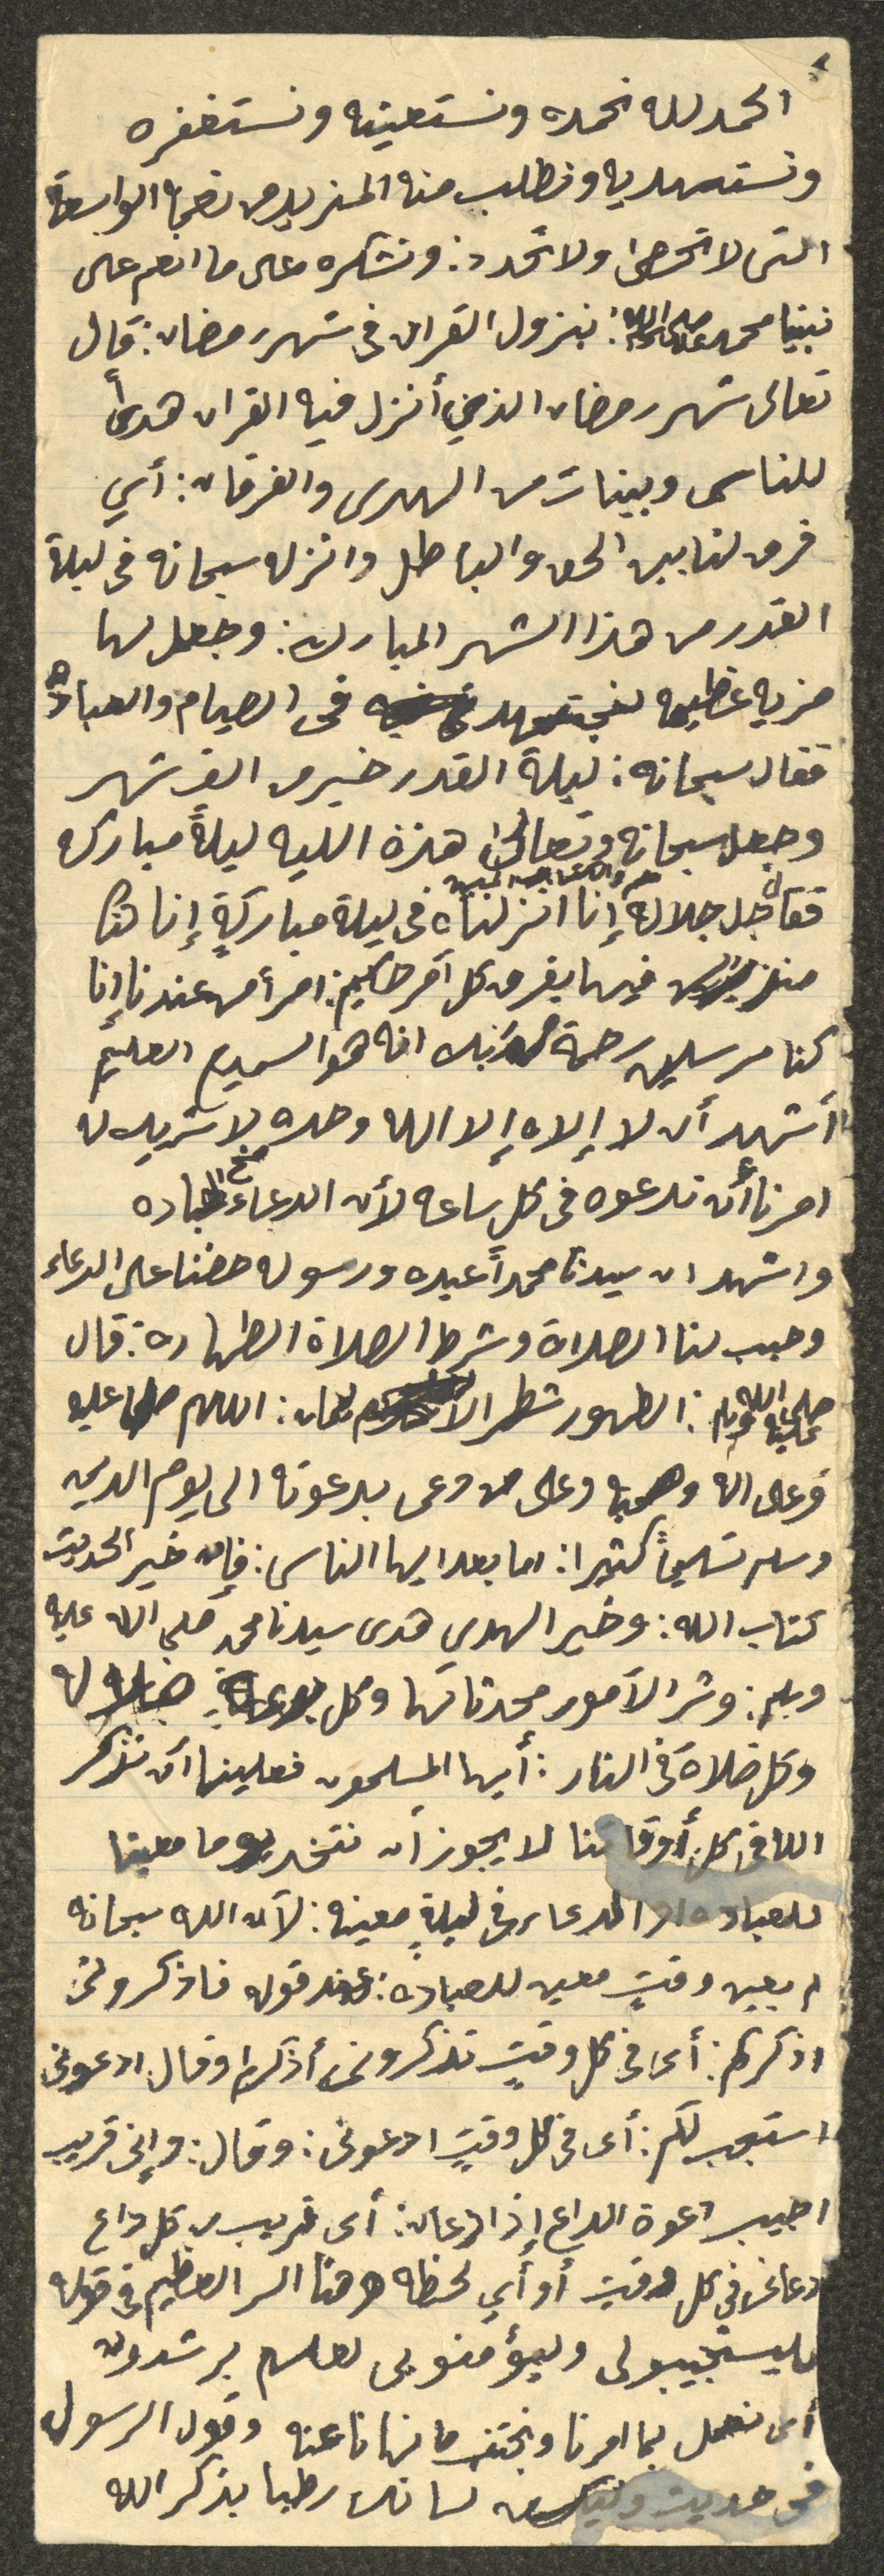 الحمد لله نحمده ونستعينه ونستغفره
ونستهديه ونطلب منه المزيد من نعمه الواسعة
التي لا تحصى ولا تحدد: ونشكره على ما انعم على
نبينا محمد صلى الله عليه وسلم: بنزول القران في شهر رمضان: قال
تعالى شهر رمضان الذي أنزل فيه القران هدىً
للناس وبينات من الهدى والفرقان: أي
فرق لنا بين الحق والباطل وانزله سبحانه في ليلة
القدر من هذا الشهر المبارك: وجعل لها
مزيه عظيمه لنجتهد في الصيام والعباده
فقال سبحانه: ليلة القدر خير من الف شهر
وجعل سبحانه وتعالى هذه الليه ليلةً مباركه
فقال جل جلاله حم والكتاب المبين إنا انزلناه في ليلة مباركةٍ إنا كنا
منذرين فيها يفرق كل أمر حكيم: امرأ من عندنا إنا
كنا مرسلين رحمة من ربك انه هو السميع العليم
أشهد أن لا إلاه إلا الله وحده لا شريك له
امرنا أن ندعوه في كل ساعه لأن الدعاء مخ العباده
واشهد ان سيدنا محمداً عبده ورسوله حضنا على الدعاء
وحبب لنا الصلاة وشرط الصلاة الطهاره: قال
صلى الله عليه وسلم: الطهور شطر الايمان: اللهم صل عليه
وعلى اله وصحبه وعلى من دعى بدعوته الى يوم الدين
وسلم تسليماً كثيرا: اما بعد ايها الناس: فإن خير الحديث
كتاب الله: وخير الهدي هدى سيدنا محمد صلى الله عليه
وسلم: وشر الأمور محدثاتها وكل بدعةٍ ضلاله
وكل ضلاة في النار: أيها المسلمون فعلينا أن نذكر
الله في كل أوقاتنا لا يجوز أن نتخذ يوما معينا
للعباده او الدعاء في ليلةٍ معينه: لأن الله سبحانه
لم يعين وقتٍ معين للعبادة: عند قوله فاذكروني
اذكركم: أى في كل وقتٍ تذكروني أذكركم وقال ادعوني
استجب لكم: أى في كل وقتٍ ادعوني: وقال: وإني قريب
اجيب دعوة الداع إذا دعان: أى قريب من كل داع
دعاني في كل وقت أو أي لحظه وهنا السر العظيم في قوله
فليستجيبو لى وليؤمنو بى لعلهم يرشدون
أى نعمل بما امرنا ونجتنب ما نهانا عنه وقول الرسول
في حديث وليكن لسانك رطبا بذكر الله